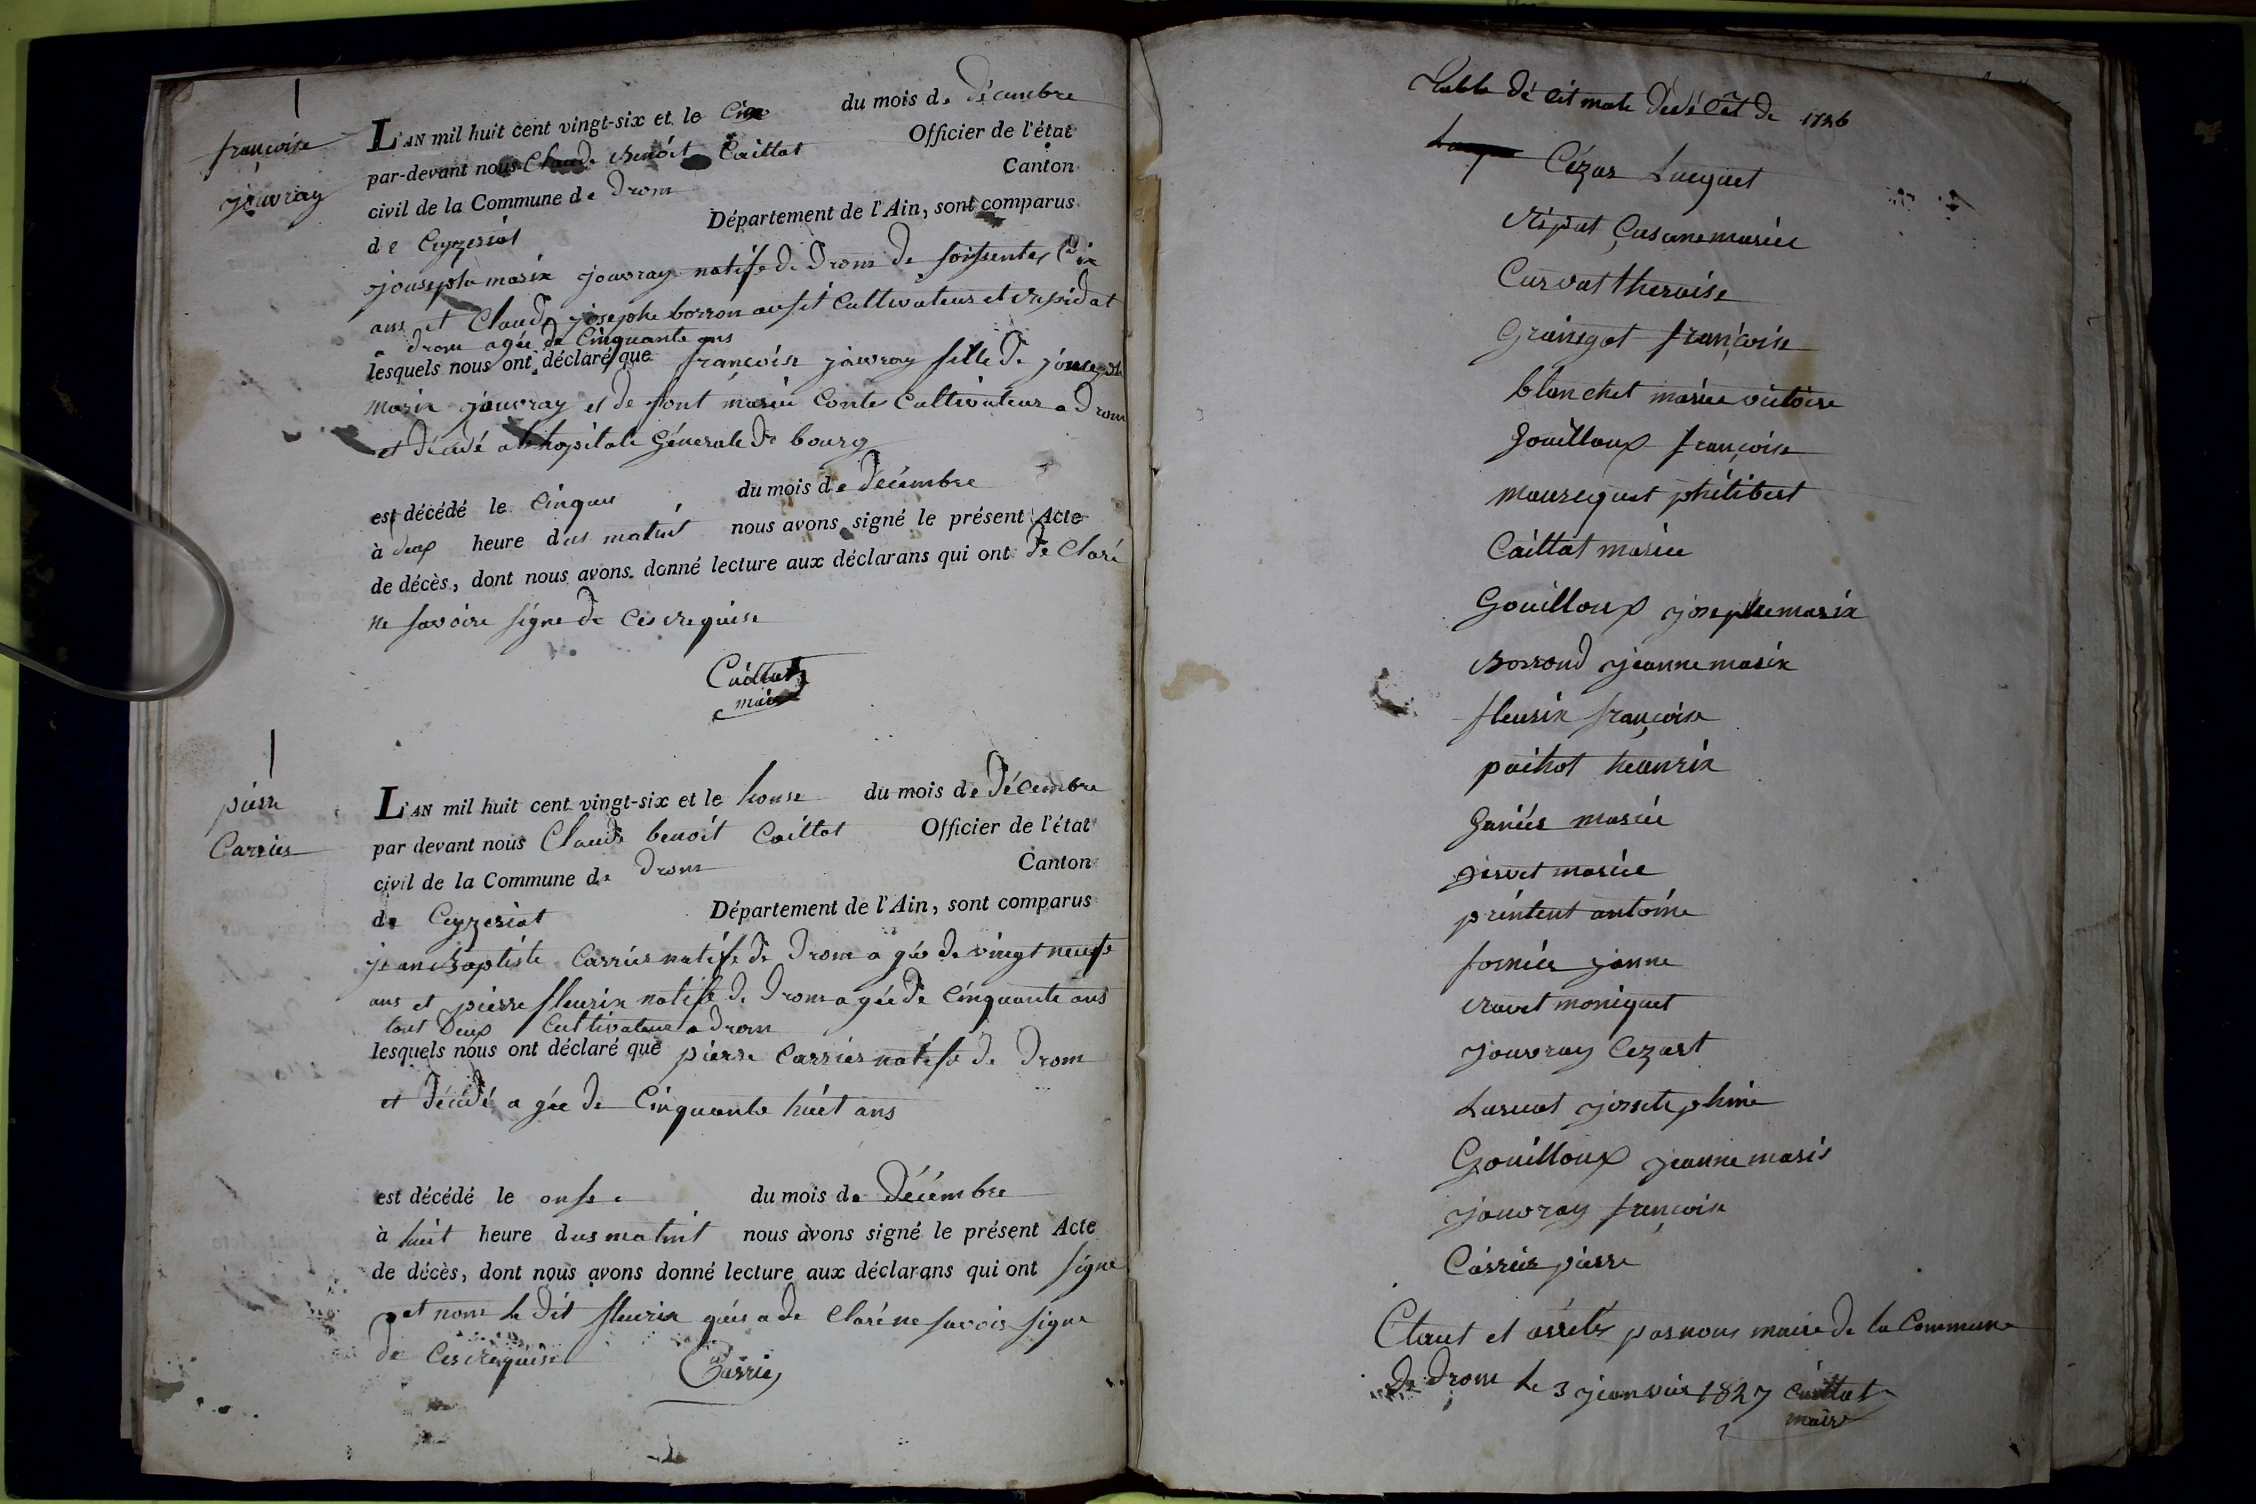 françoise
jouvray
L'AN mil huit cent vingt-six et le cinq du mois de décembre
par-devant nous Claude Benoit Caillat Officier de l'état
civil de la Commune de Drom Canton
de Ceyzeriat Département de l'Ain, sont comparus
jouseph marix jouvray natife de Drom de soissente Dix
ans et Claude josephe borron ausit Cultivateur et residat
a drom agée de Cinquante ans
lesquels nous ont déclaré que françoise jouvray fille de jouseph
marix jouvray et de font mariee Conte Cultivateur a Drom
et décédé a lhopitale Génerale de bourg
est décédé le Cinque du mois de decémbre
à deux heure dus matint nous avons signé le présent Acte
de décès, dont nous avons donné lecture aux déclarans qui ont de Claré
ne savoire signe de Ces requise
Caillat
maire
pierre
Carrier
L'AN mil huit cent vingt-six et le honse du mois de Décembre
par devant nous Claude benoit Caillat Officier de l'état
civil de la Commune de Drom Canton
de Ceyzeriat Département de l'Ain, sont comparus
jean Baptiste Carrier natife de Drom a gée de vingt neufe
ans et pierre fleurix natife de Drom a gée de Cinquante ans
tout Deux Cultivateur a Drom
lesquels nous ont déclaré que pierre Carrier natife de Drom
et décédé a gée de Cinquante huit ans
est décédé le onse du mois de Décémbre
à huit heure dus matint nous avons signé le présent Acte
de décès, dont nous avons donné lecture aux déclarans qui ont signe
et nom le Dit fleurix quis a de Claré ne savoir signe
de Ces requise Carrier
Table dé cit male 1726
Cézar Luquet
Curvat theraise
Graingot françoise
blanchet mariee victoire
Gouilloux françoise
maureguet philibert
Caillat mariee
Gouilloux josephe marix
Borrond jeanne marix
fleurix françoise
paihot heanrix
Janiér mariée
jirvet mariée
printent antoine
fornier janne
ravet moniquet
jouvray Cezart
Larvat josetephine
Gouilloux jeanne maris
jouvray françoise
Carrier pierre
Claut et arrêté par nous maire de la Commune
De Drom le 3 jeanvier 1827 Caillat
maire